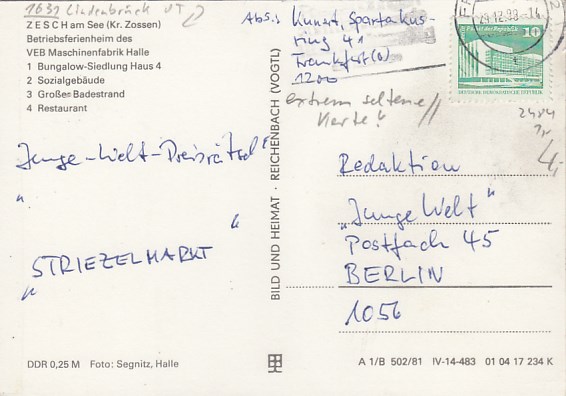 1631 Lindenbrück OT
ZESCH am See (Kr. Zossen)
Betriebsferienheim des
VEB Maschinenfabrik Halle
1 Bungalow-Siedlung Haus 4
2 Sozialgebäude
3 Großer Badestrand
4 Restaurant
Junge-Welt-Preisrätsel
"
"
STRIEZELMARKT
"
DDR 0,25 M Foto: Segnitz, Halle
BILD UND HEIMAT · REICHENBACH (VOGTL)
Abs.: Kunart, Spartakus-
ring 41
Frankfurt (O)
1200
extrem seltene
Karte!
10
DEUTSCHE DEMOKRATISCHE REPUBLIK
4,-
Redaktion
„Junge Welt"
Postfach 45
BERLIN
1056
A 1/B 502/81 IV-14-483 01 04 17 234 K